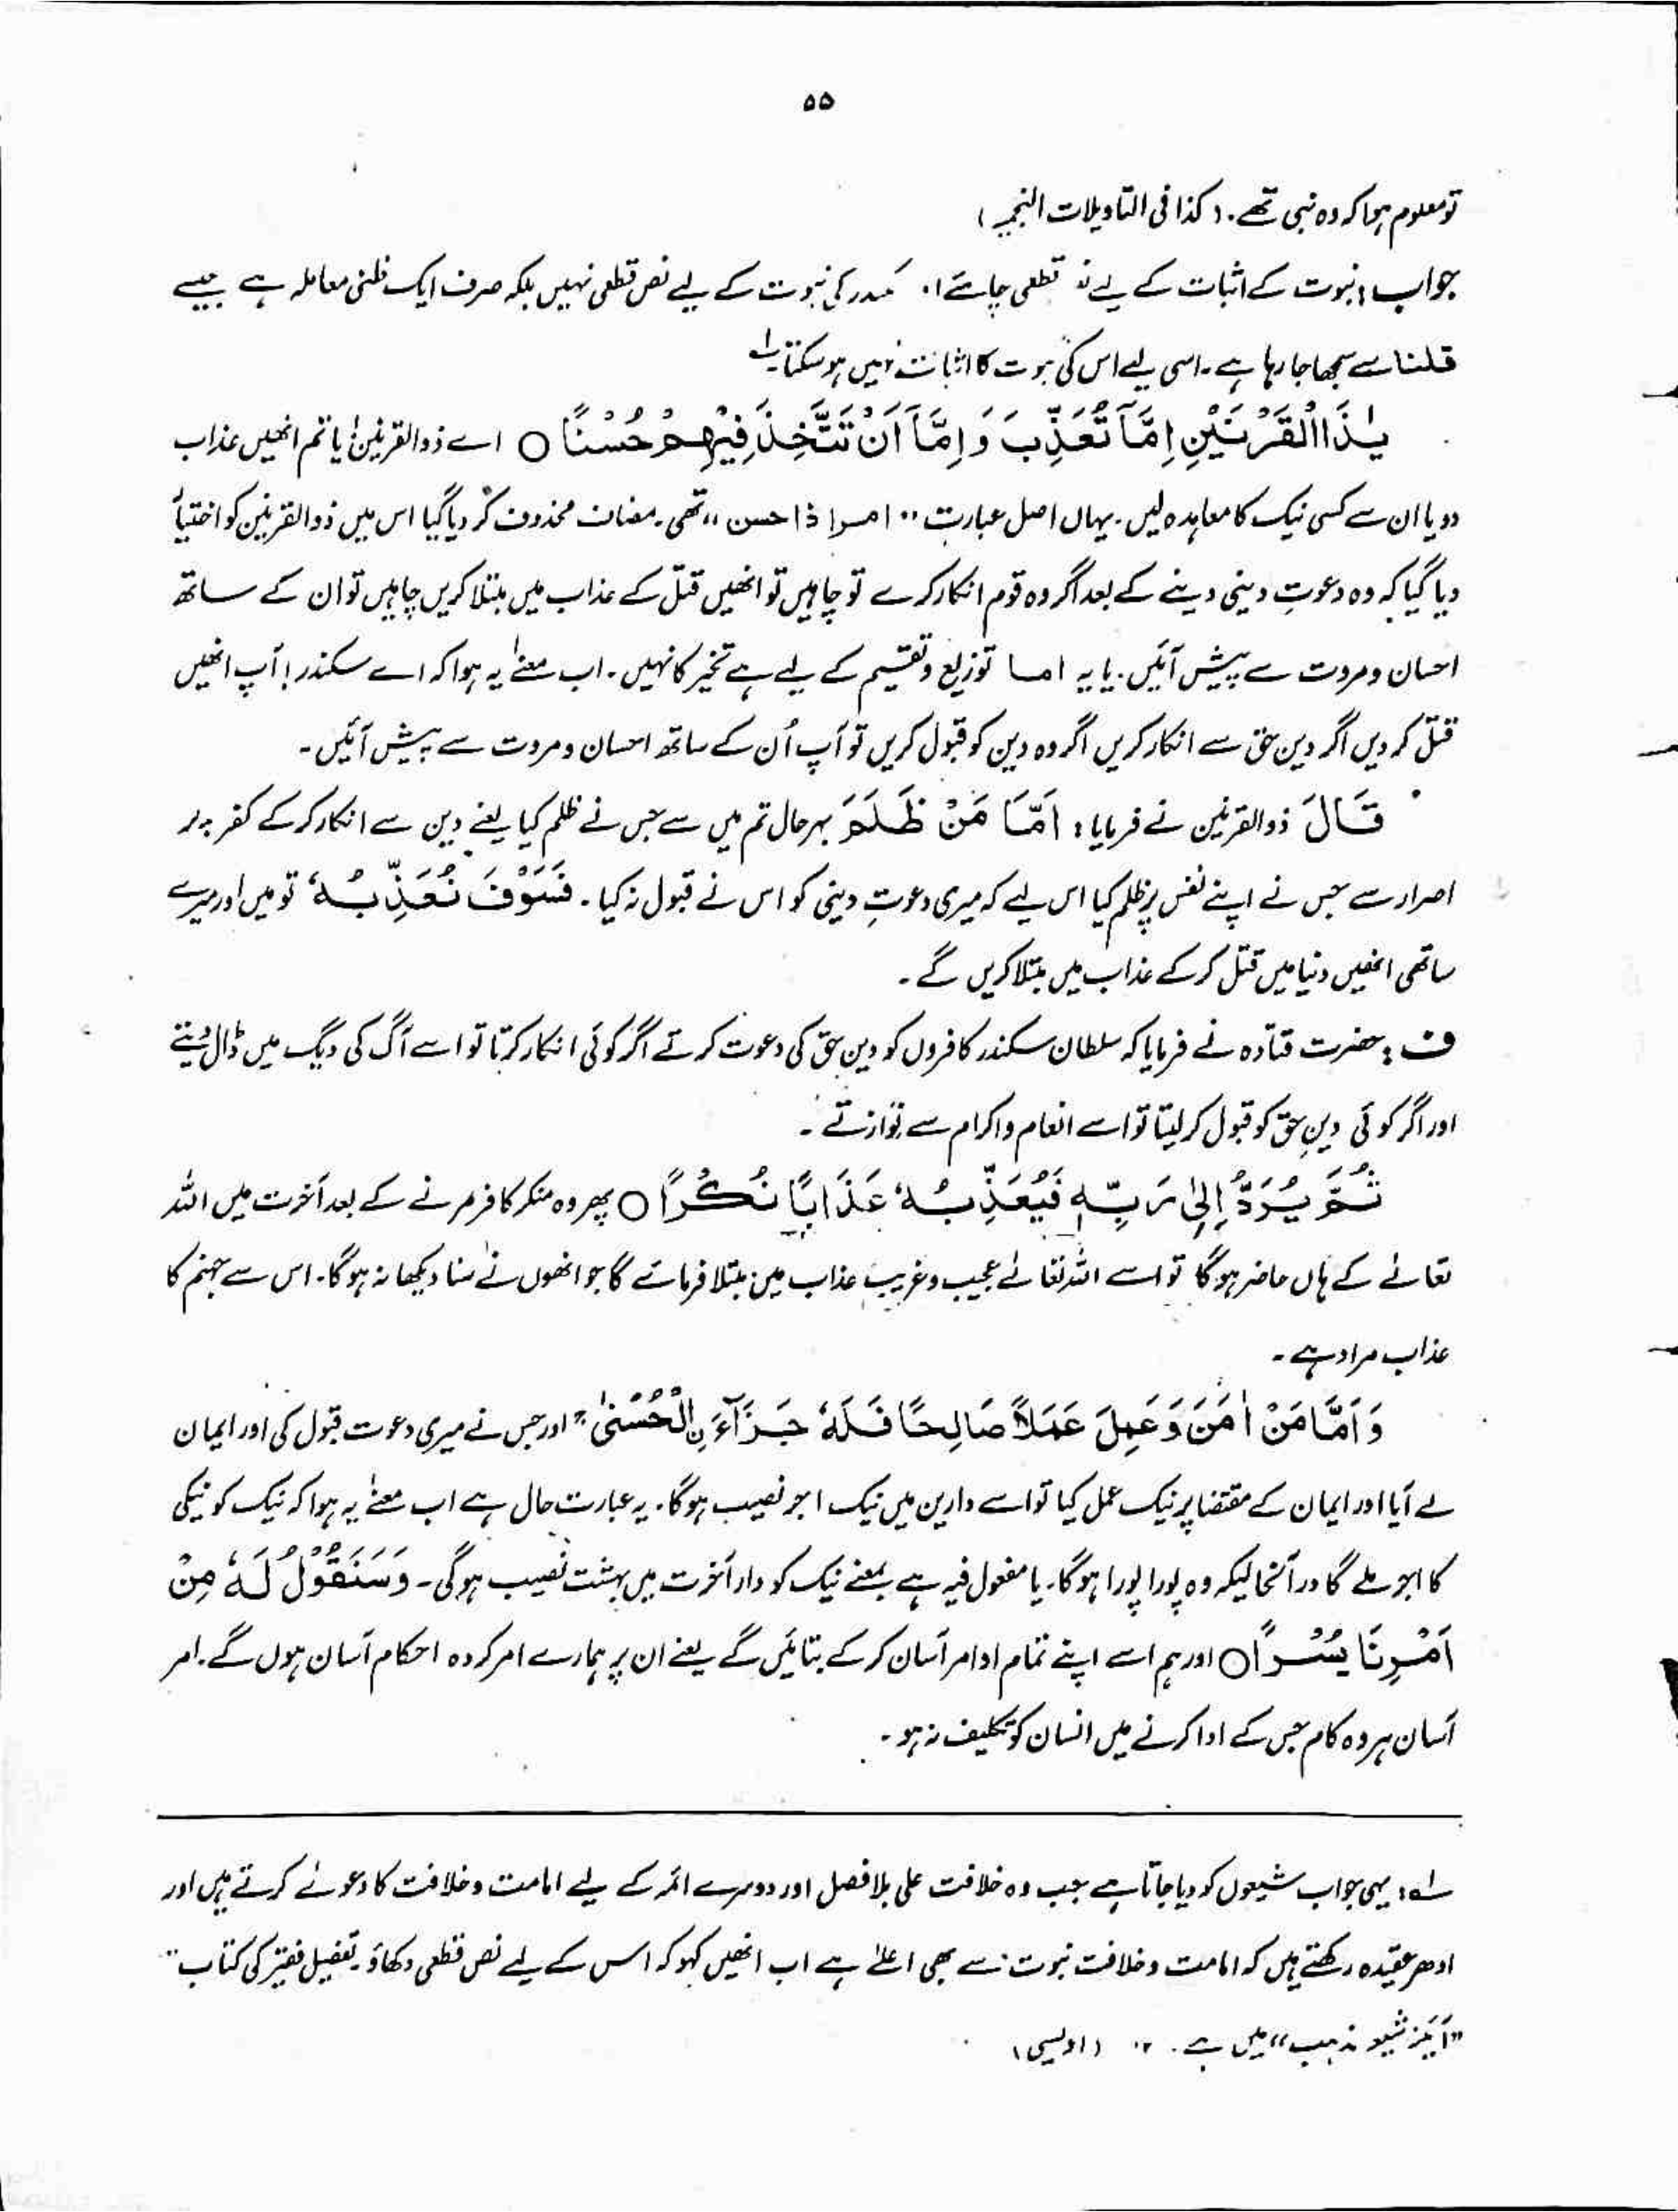 ۵۵
تو معلوم ہوا کہ وہ نبی تھے۔ (کذا فی التاویلات النجمیہ)
جواب: نبوت کے اثبات کے لیے قطعی چاہئے۔ کی نبوت کے لیے نص قطعی نہیں بلکہ صرف ایک ظنی معاملہ ہے جیسے
قلنا سے سمجھا جا رہا ہے۔ اسی لیے اس کی نبوت کا اثبات نہیں ہو سکتا۔ لہ
يٰذَا الْقَرْنَيْنِ اِمَّآ تُعَذِّبَ وَ اِمَّآ اَنْ تَتَّخِذَ فِيْهِمْ حُسْنًا ○ اے ذوالقرنین! یا تم انھیں عذاب
دو یا ان سے کسی نیک کا معاہدہ لیں۔ یہاں اصل عبارت "امرا ذا حسن" تھی۔ مضاف محذوف کر دیا گیا اس میں ذوالقرنین کو اختیار
دیا گیا کہ وہ دعوتِ دینی دینے کے بعد اگر وہ قوم انکار کرے تو چاہیں تو انھیں قتل کے عذاب میں مبتلا کریں چاہیں تو ان کے ساتھ
احسان و مروت سے پیش آئیں۔ یا یہ اما توزیع و تقسیم کے لیے ہے تخیر کا نہیں۔ اب معنٰے یہ ہوا کہ اے سکندر! آپ انھیں
قتل کر دیں اگر دین حق سے انکار کریں اگر وہ دین کو قبول کریں تو آپ اُن کے ساتھ احسان و مروت سے پیش آئیں۔
قَالَ ذوالقرنین نے فرمایا: اَمَّا مَنْ ظَلَمَ بہرحال تم میں سے جس نے ظلم کیا یعنے دین سے انکار کرکے کفر پر
اصرار سے جس نے اپنے نفس پر ظلم کیا اس لیے کہ میری دعوتِ دینی کو اس نے قبول نہ کیا۔ فَسَوْفَ نُعَذِّبُهٗ تو میں اور میرے
ساتھی انھیں دنیا میں قتل کرکے عذاب میں مبتلا کریں گے۔
ف: حضرت قتادہ نے فرمایا کہ سلطان سکندر کافروں کو دین حق کی دعوت کرتے اگر کوئی انکار کرتا تو اسے آگ کی دیگ میں ڈال دیتے
اور اگر کوئی دینِ حق کو قبول کر لیتا تو اسے انعام و اکرام سے نوازتے۔
ثُمَّ يُرَدُّ اِلٰى رَبِّهٖ فَيُعَذِّبُهٗ عَذَابًا نُكْرًا ○ پھر وہ منکر کافر مرنے کے بعد آخرت میں اللہ
تعالٰے کے ہاں حاضر ہوگا تو اسے اللہ تعالٰے عجیب و غریب عذاب میں مبتلا فرمائے گا جو انھوں نے سنا دیکھا نہ ہوگا۔ اس سے جہنم کا
عذاب مراد ہے۔
وَ اَمَّا مَنْ اٰمَنَ وَعَمِلَ عَمَلًا صَالِحًا فَلَهٗ جَزَآءَنِ الْحُسْنٰى ۚ اور جس نے میری دعوت قبول کی اور ایمان
لے آیا اور ایمان کے مقتضا پر نیک عمل کیا تو اسے دارین میں نیک اجر نصیب ہوگا۔ یہ عبارت حال ہے اب معنٰے یہ ہوا کہ نیک کو نیکی
کا اجر ملے گا درآنحالیکہ وہ پورا پورا ہوگا۔ یا مفعول فیہ ہے بمعنے نیک کو دار آخرت میں بہشت نصیب ہوگی۔ وَسَنَقُوْلُ لَهٗ مِنْ
اَمْرِنَا يُسْرًا ○ اور ہم اسے اپنے تمام اوامر آسان کر کے بتائیں گے یعنے ان پر ہمارے امر کردہ احکام آسان ہوں گے۔ امر
آسان ہر وہ کام جس کے ادا کرنے میں انسان کو تکلیف نہ ہو۔
لہ: یہی جواب شیعوں کو دیا جاتا ہے جب وہ خلافت علی بلا فصل اور دوسرے ائمہ کے لیے امامت و خلافت کا دعوٰے کرتے ہیں اور
ادھر عقیدہ رکھتے ہیں کہ امامت و خلافت نبوت سے بھی اعلٰے ہے اب انھیں کہو کہ اس کے لیے نص قطعی دکھاؤ۔ تفصیل فقیر کی کتاب
"آئینہ شیعہ مذہب" میں ہے۔ ۱۲ (اویسی)